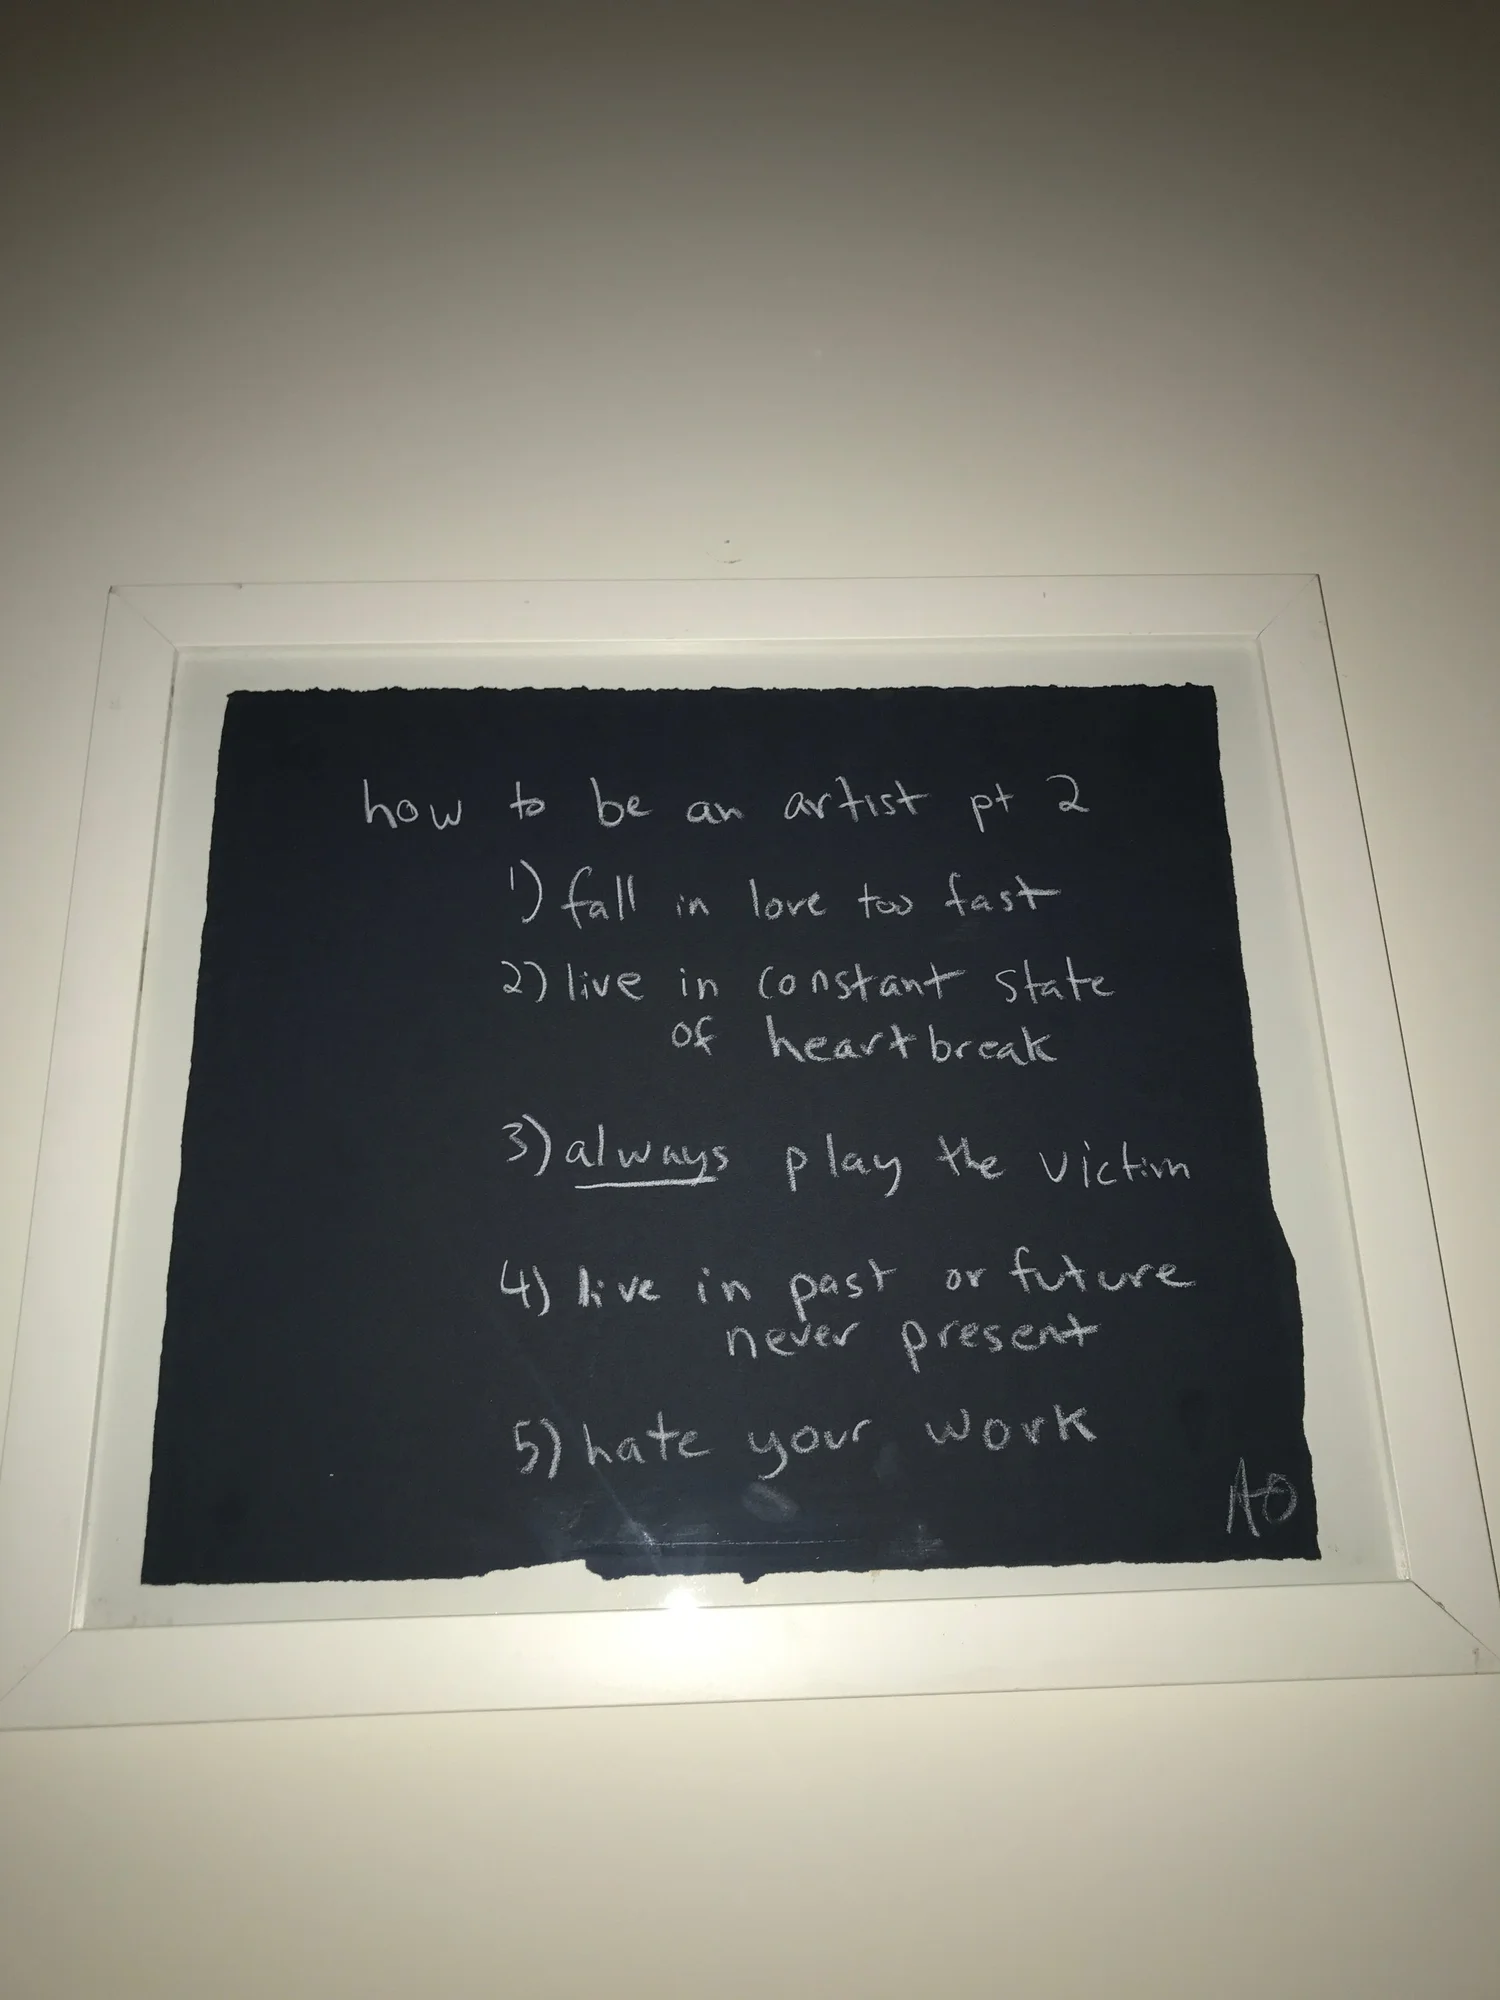 how to be an artist pt 2
1) fall in love too fast
2) live in constant state
of heartbreak
3) always play the victim
4) live in past or future
never present
5) hate your work
AO